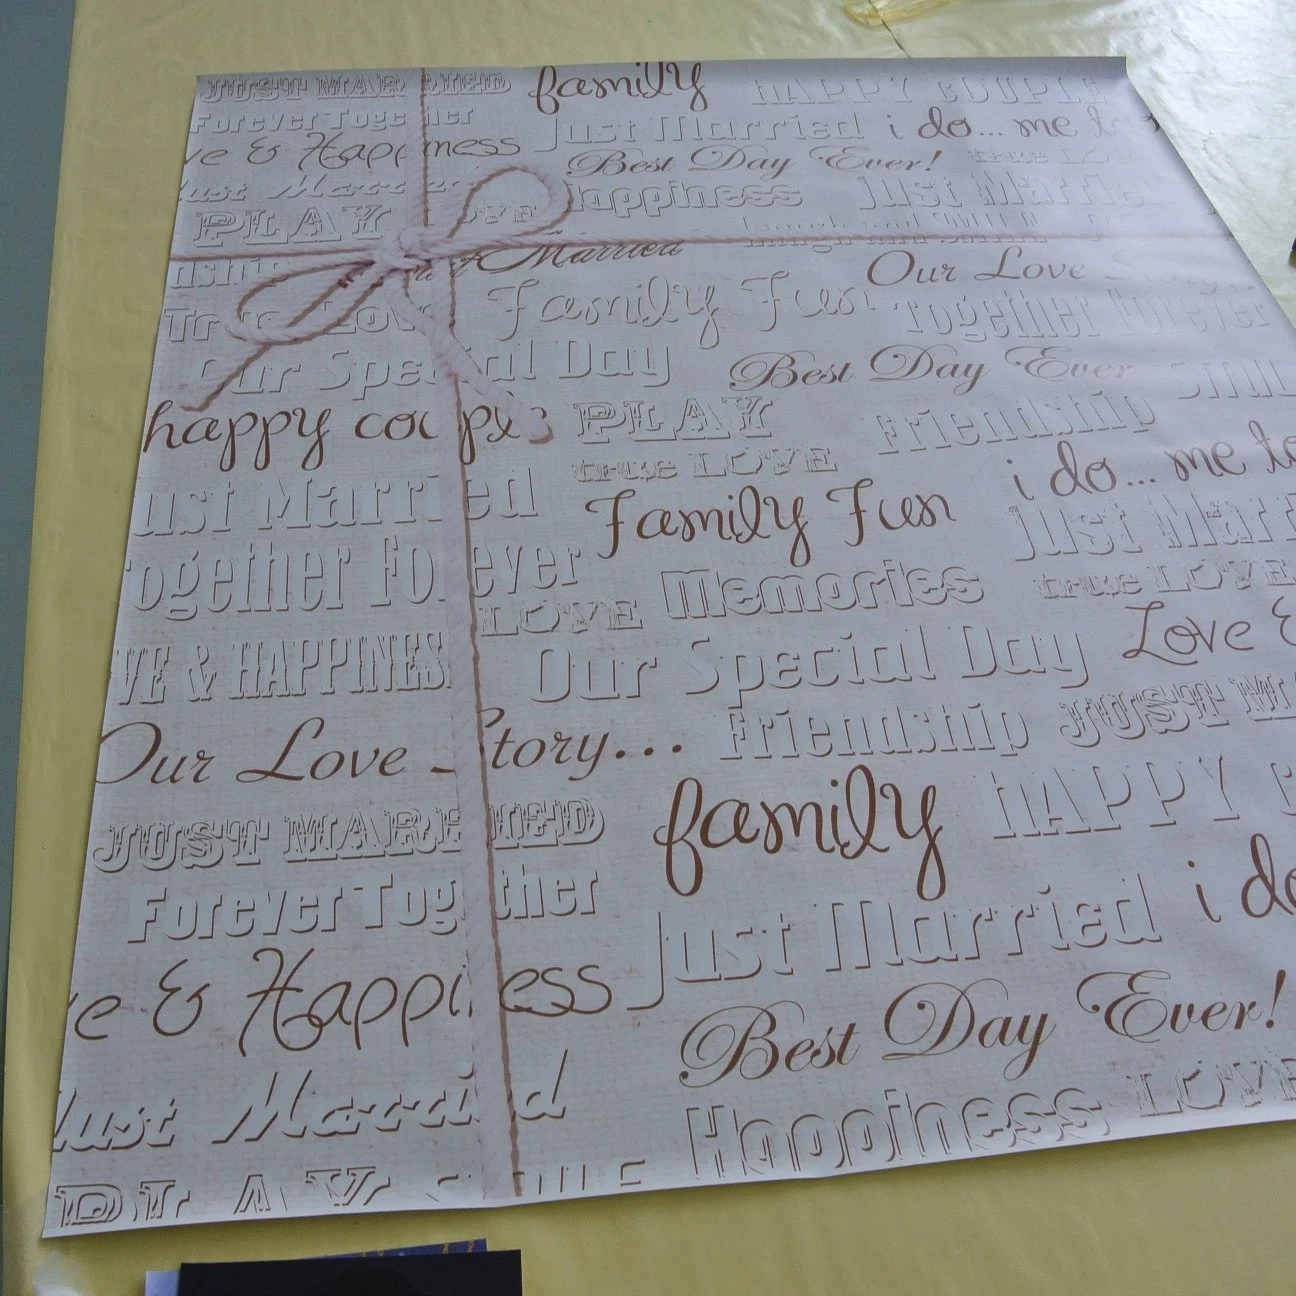 JUST MARRIED family HAPPY COUPLE
Forever Together Just Married i do... me to
ve & Happiness Best Day Ever! true LOVE
Just Married Happiness Just Married
PLAY LOVE Laugh and SMILE
Just Married Our Love
True Love Family Fun Together Forever
Our Special Day Best Day Ever SMIL
happy couple PLAY Friendship
true LOVE i do... me to
ust Married Family Fun Just Marr
ogether Forever Memories true LOVE
LOVE Our Special Day Love &
VE & HAPPINESS Friendship JUST MA
Our Love Story... family HAPPY C
JUST MARRIED
Forever Together Just Married i do
e & Happiness Best Day Ever!
Just Married Happiness LOVE
PLAY